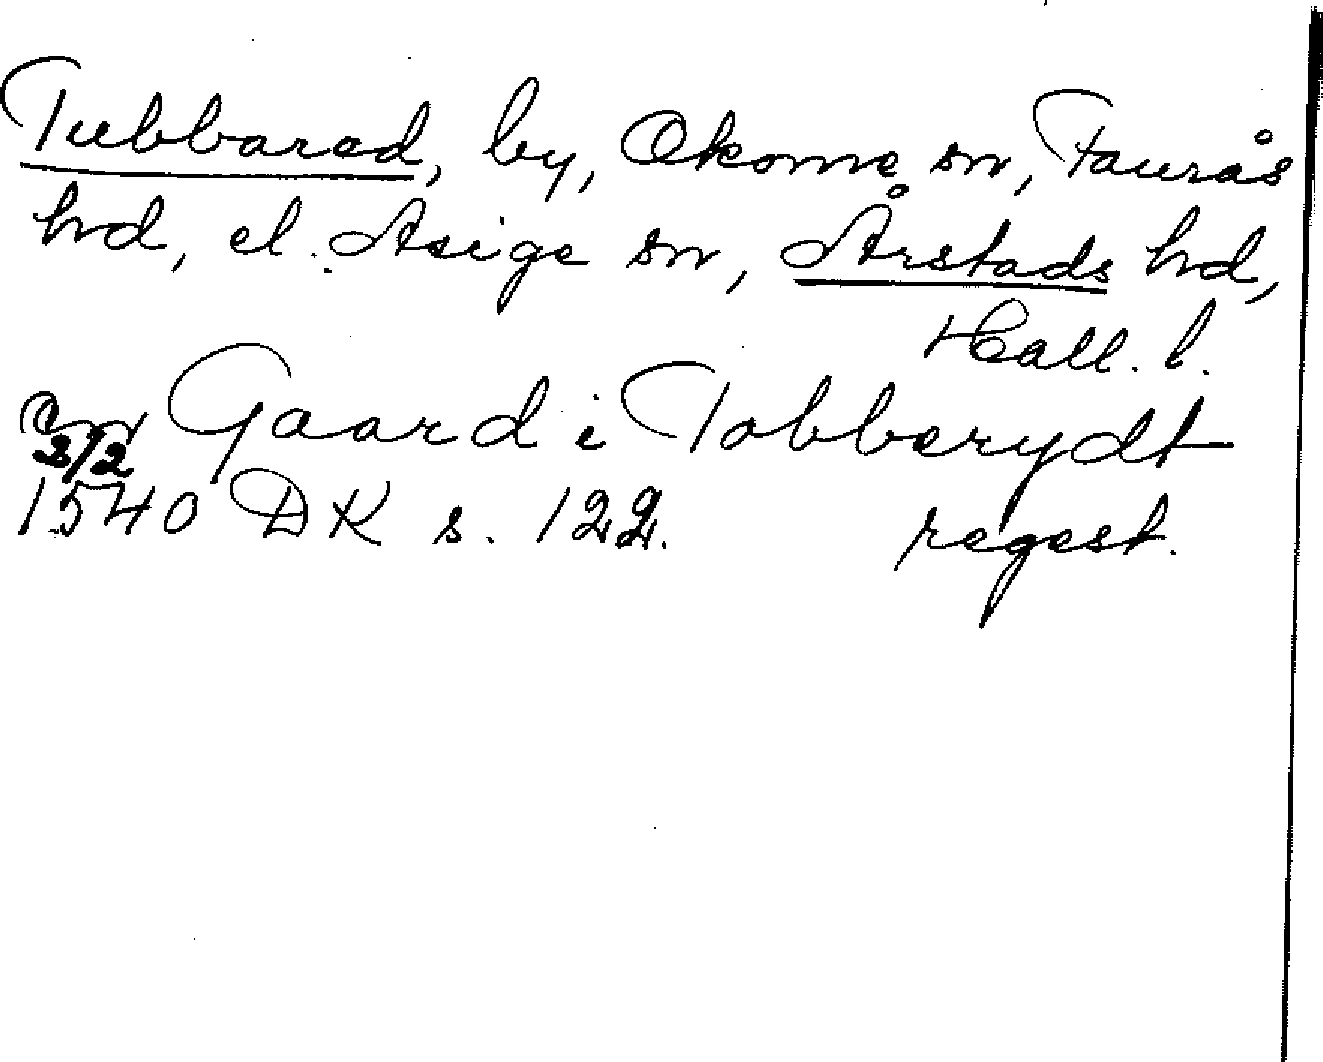 Tubbared, by, Okome sn, Faurås
hd, el. Asige sn, Årstads hd,
Hall. l.
en Gaard i Tobberydt
2/2
1540 DK s. 122. regest.